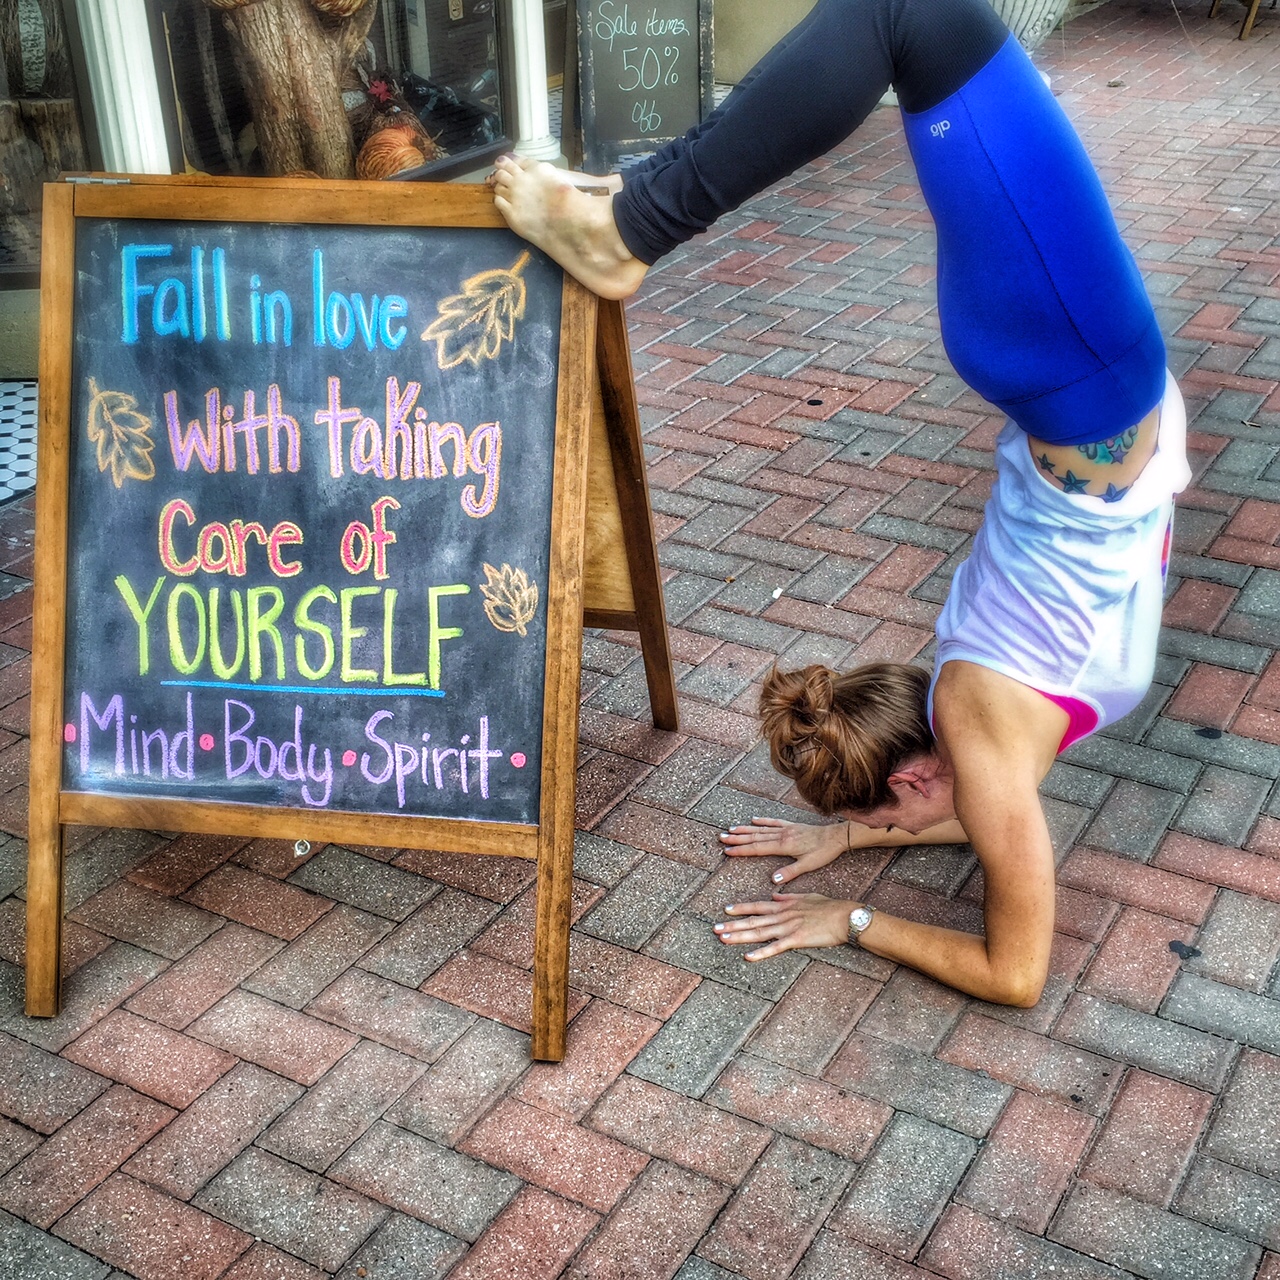 Sale items
50%
off
alo
Fall in love
With taking
Care of
YOURSELF
•Mind•Body•Spirit•